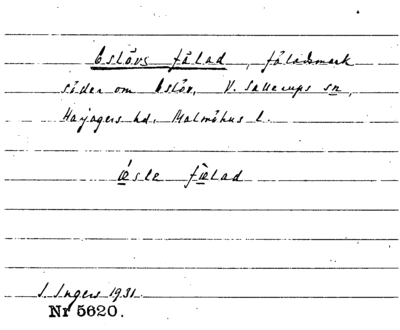 Eslövs fälad, fäladsmark
söder om Eslöv, V. Sallerups sn,
Harjagers hd, Malmöhus l.
fælad
I. Ingers 1931
Nr 5620.